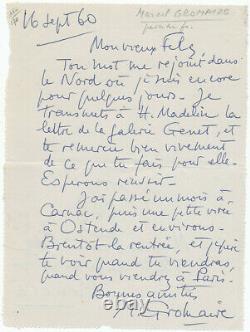 16 Sept 60
Marcel GROMAIRE
Mon vieux Fels
Ton mot me rejoint dans
le Nord où je suis encore
pour quelques jours. Je
transmets à H. Madelin la
lettre de la galerie Genet, et
te remercie bien vivement
de ce que tu fais pour elle.
Espérons réussir.
J'ai passé un mois à
Carnac, puis une petite virée
à Ostende et environs.
Bientôt la rentrée, et j'espère
te voir quand tu viendras,
quand vous viendrez à Paris.
Bonnes amitiés
Gromaire